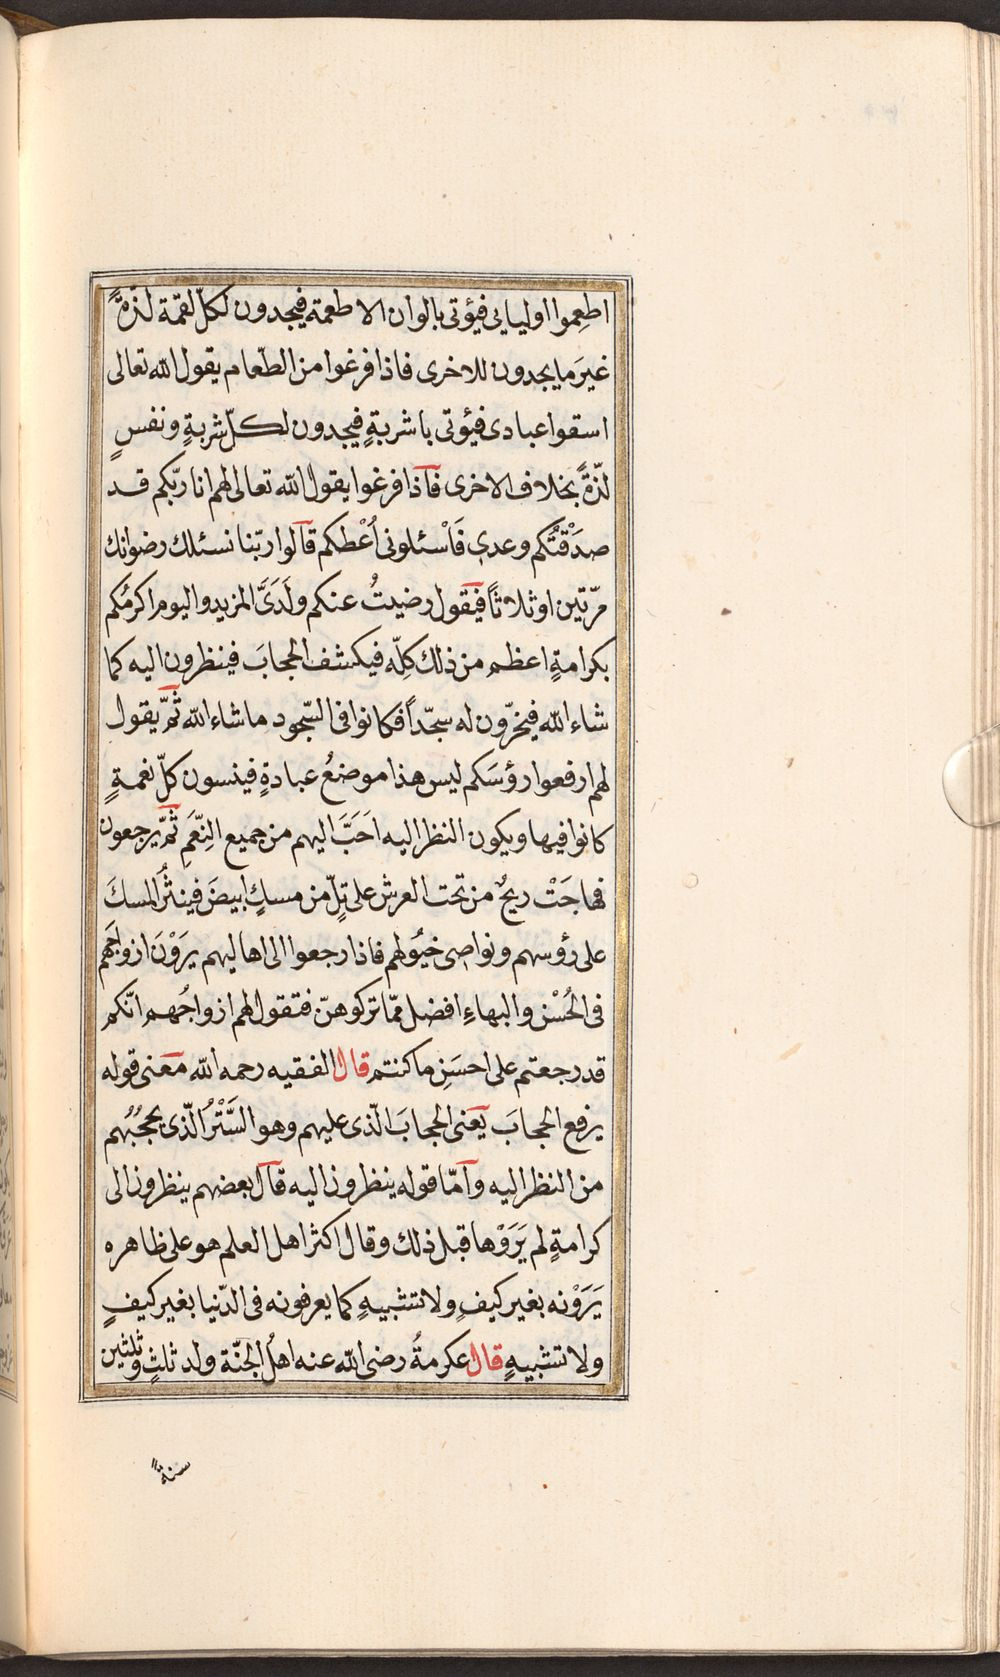 اطعموا اوليايى فيؤتى بالوان الاطعمة فيجدون لكلّ لقمة لذّةً
غيرَ ما يجدون للاخرى فاذا فرغوا من الطّعام يقول الله تعالى
اسقوا عبادى فيئوتى باشربةٍ فيجدون لكلّ شربةٍ ونفسٍ
لذّةً بخلاف الاخرى فاذا فرغوا يقول الله تعالى لهم انا ربّكم قد
صدَقْتُكم وعدى فَاسْئلونى اُعْطكم قالوا ربّنا نسئلك رضوانك
مرّتين او ثلاثاً فيقول رضيتُ عنكم ولَدَىَّ المزيد واليوم اكرمُكم
بكرامةٍ اعظم من ذلك كلّه فيكشف الحجابَ فينظرون اليه كما
شاء الله فيخرّون له سجّداً فكانوا فى السّجود ما شاء الله ثمَّ يقول
لهم ارفعوا رؤسَكم ليس هذا موضعُ عبادةٍ فينسون كلّ نعمةٍ
كانوا فيها ويكون النظر اليه اَحَبَّ اليهم من جميع النِّعَمِ ثمّ يرجعون
فهاجَتْ ريحٌ من تحت العرش على تلٍّ من مسكٍ ابيضَ فينثُرُ المسكَ
على رؤسهم ونواصى خيُولهم فاذا رجعوا الى اهاليهم يرَوْنَ ازواجَهم
فى الحُسْن والبهاءِ افضل ممّا تركوهنّ فتقول لهم ازواجُهم انّكم
قد رجعتم على احسَنِ ما كنتم قال الفقيه رحمه الله معنى قوله
يرفع الحجابَ يعنى الحجابَ الّذى عليهم وهو السَّتْرُ الّذى يحجُبُهم
من النظر اليه وامّا قوله ينظرون اليه قال بعضهم ينظرون الى
كرامةٍ لم يَرَوْها قبل ذلك وقال اكثر اهل العلم هو على ظاهره
يَرَوْنه بغير كيفٍ ولا تشبيهٍ كما يعرفونه فى الدّنيا بغير كيفٍ
ولا تشبيهٍ قال عكرمةُ رضى الله عنه اهلُ الجنّة ولد ثلثٍ وثلثين
سنةً